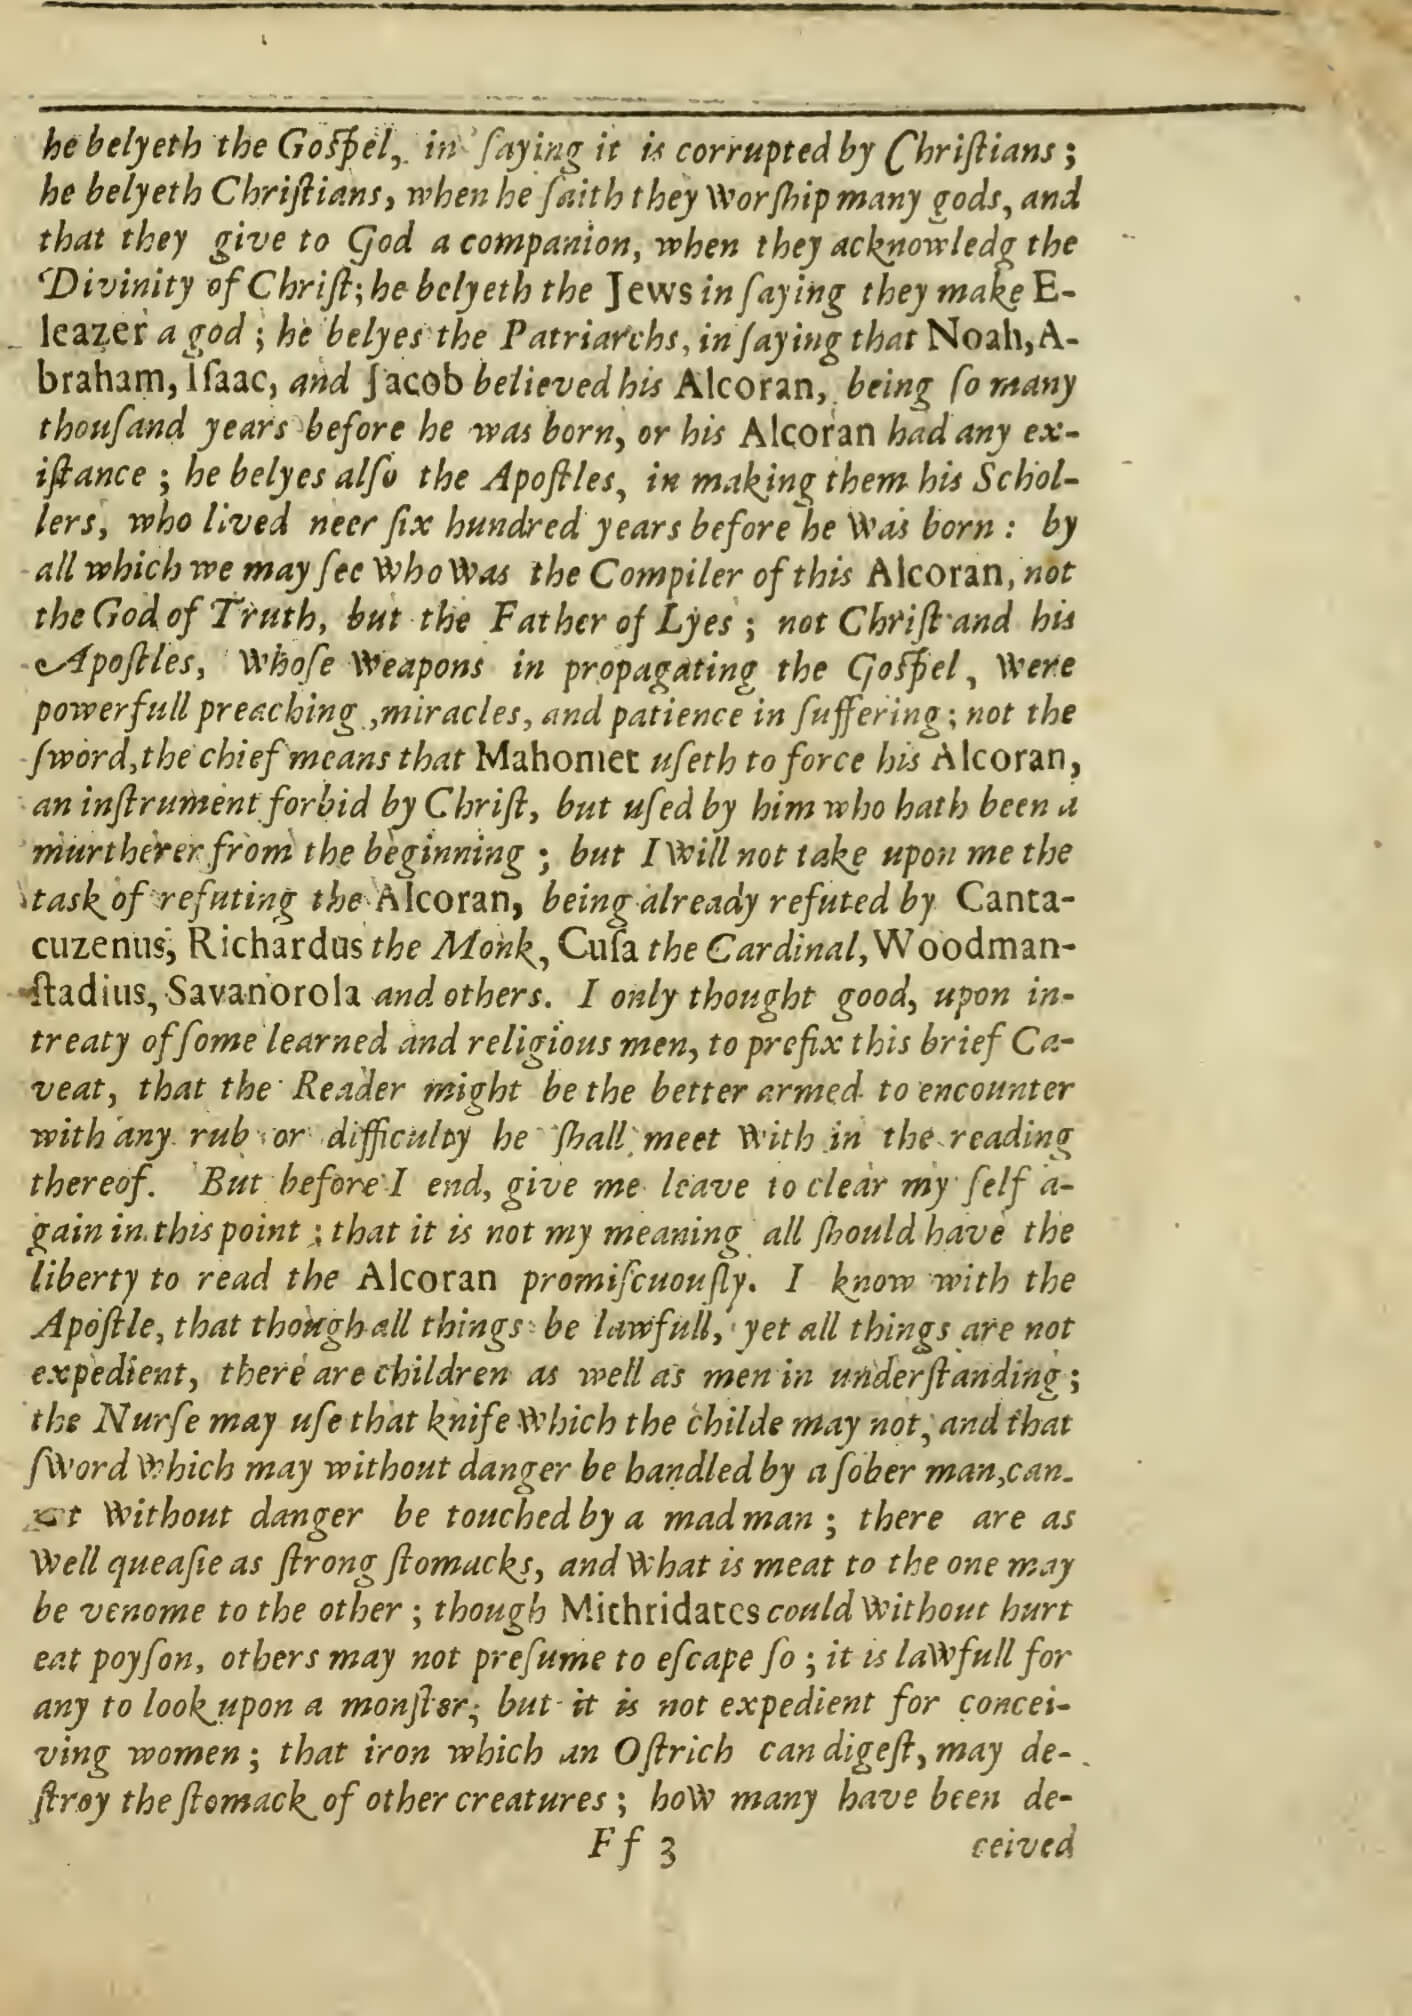 he belyeth the Gospel, in ſaying it is corrupted by Chriſtians;
he belyeth Chriſtians, when he ſaith they worſhip many gods, and
that they give to God a companion, when they acknowledg the
Divinity of Chriſt; he belyeth the Jews in ſaying they make E-
leazer a god; he belyes the Patriarchs, in ſaying that Noah, A-
braham, Iſaac, and Jacob believed his Alcoran, being ſo many
thouſand years before he was born, or his Alcoran had any ex-
iſtance; he belyes alſo the Apoſtles, in making them his Schol-
lers, who lived neer ſix hundred years before he was born: by
all which we may ſee who was the Compiler of this Alcoran, not
the God of Truth, but the Father of Lyes; not Chriſt and his
Apoſtles, whoſe weapons in propagating the Goſpel, were
powerfull preaching, miracles, and patience in ſuffering; not the
ſword, the chief means that Mahomet uſeth to force his Alcoran,
an inſtrument forbid by Chriſt, but uſed by him who hath been a
murtherer from the beginning; but I will not take upon me the
task of refuting the Alcoran, being already refuted by Canta-
cuzenus, Richardus the Monk, Cuſa the Cardinal, Woodman-
ſtadius, Savanorola and others. I only thought good, upon in-
treaty of ſome learned and religious men, to prefix this brief Ca-
veat, that the Reader might be the better armed to encounter
with any rub or difficulty he ſhall meet with in the reading
thereof. But before I end, give me leave to clear my ſelf a-
gain in this point; that it is not my meaning all ſhould have the
liberty to read the Alcoran promiſcuouſly. I know with the
Apoſtle, that though all things be lawfull, yet all things are not
expedient, there are children as well as men in underſtanding;
the Nurſe may uſe that knife which the childe may not, and that
ſword which may without danger be handled by a ſober man, can-
t without danger be touched by a mad man; there are as
well queaſie as ſtrong ſtomacks, and what is meat to the one may
be venome to the other; though Mithridates could without hurt
eat poyſon, others may not preſume to eſcape ſo; it is lawfull for
any to look upon a monſter; but it is not expedient for concei-
ving women; that iron which an Oſtrich can digeſt, may de-
ſtroy the ſtomack of other creatures; how many have been de-
Ff 3 ceived